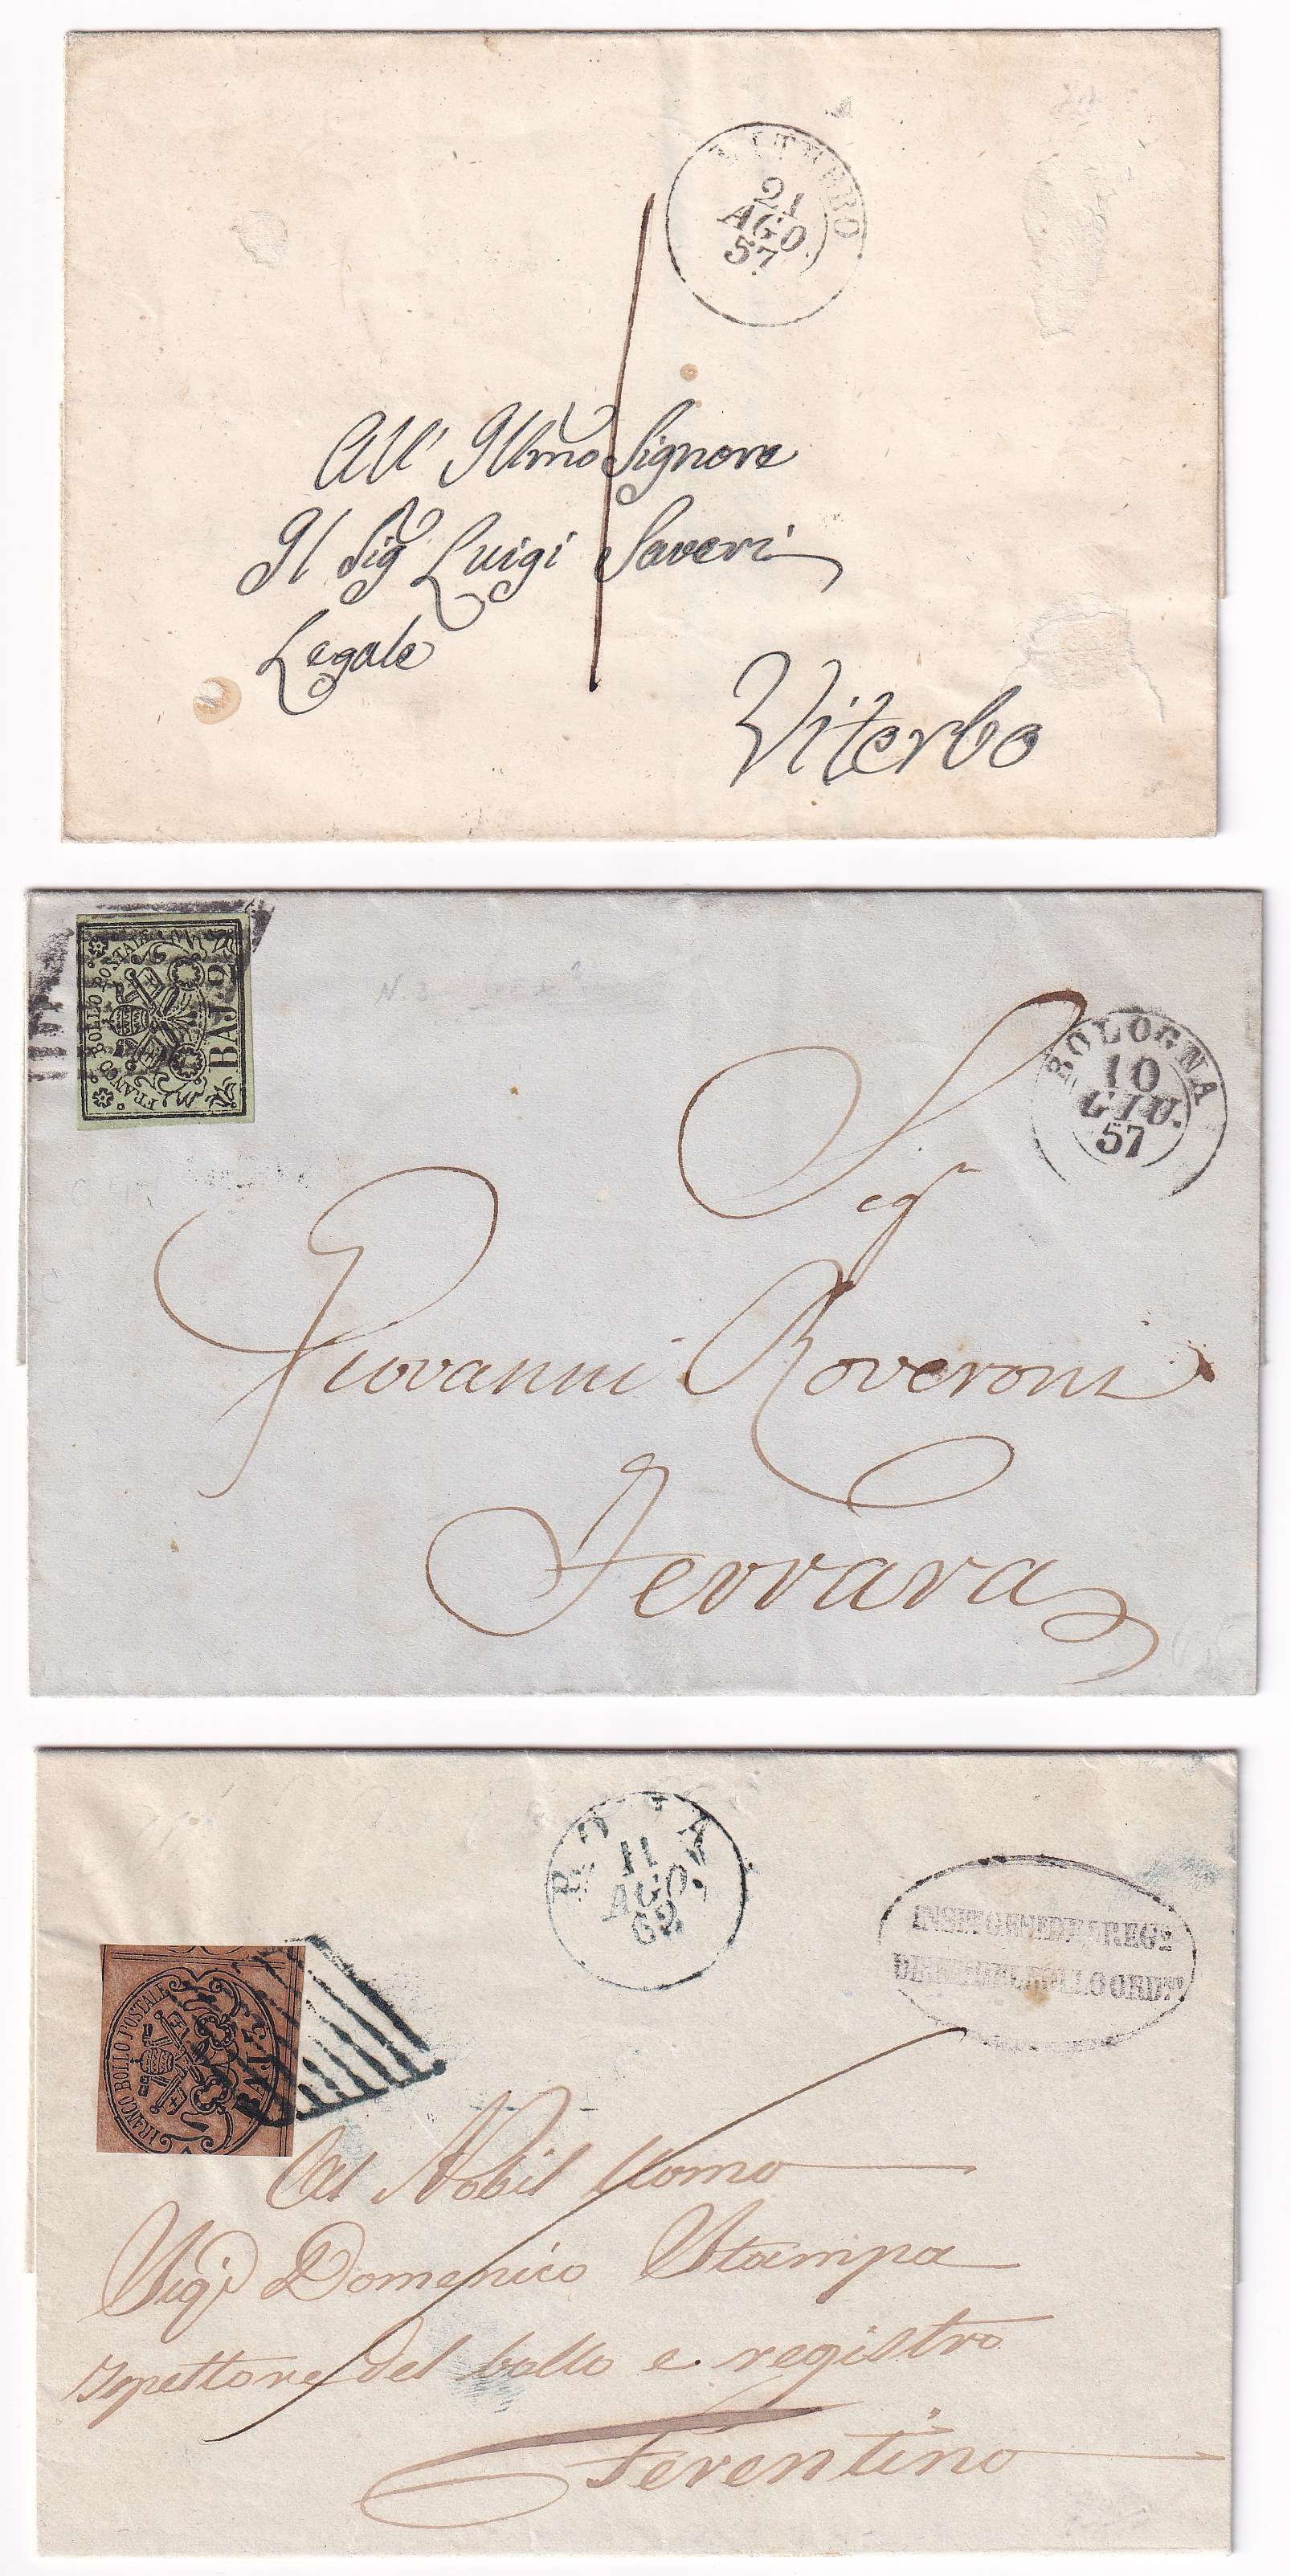 VITERBO
21
AGO
57
All' Illmo Signore
Il Sigr Luigi Saveri
Legale
Viterbo
FRANCO BOLLO POSTALE
BAJ. 2
BOLOGNA
10
GIU.
57
Sigr
Giovanni Roveroni
Ferrara
ROMA
11
AGO
62
FRANCO BOLLO POSTALE
BAJ. 3
Al Nobil Uomo
Sigr Domenico Stampa
Ispettore del bollo e registro
Ferentino